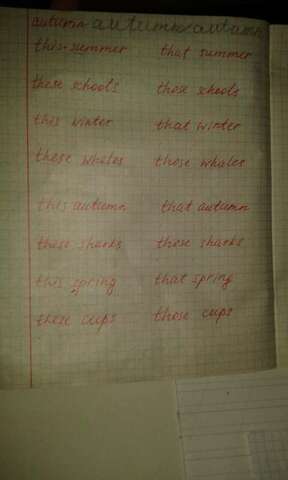 autumn autumn autumn
this summer that summer
these schools those schools
this winter that winter
those whales those whales
this autumn that autumn
these sharks those sharks
this spring that spring
these cups those cups